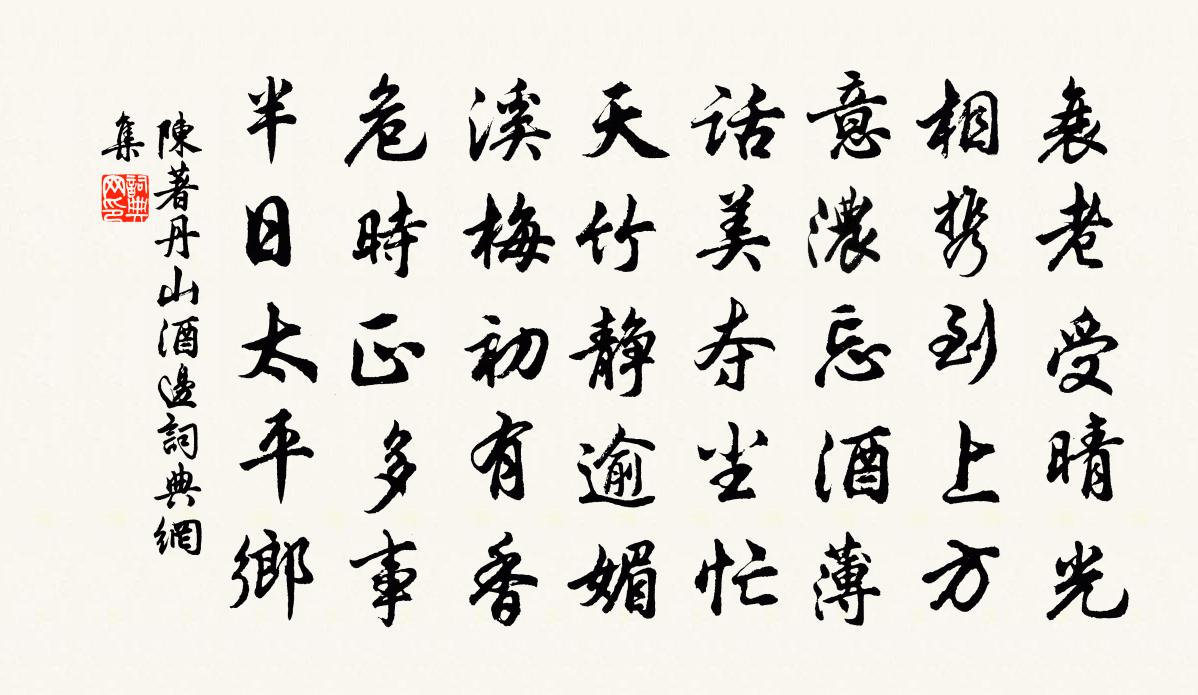 衰老受晴光
相携到上方
意濃忘酒薄
話美夺尘忙
天竹靜逾媚
溪梅初有香
危時正多事
半日太平鄉
陳著丹山酒邊詞典網
集
詞典
网印